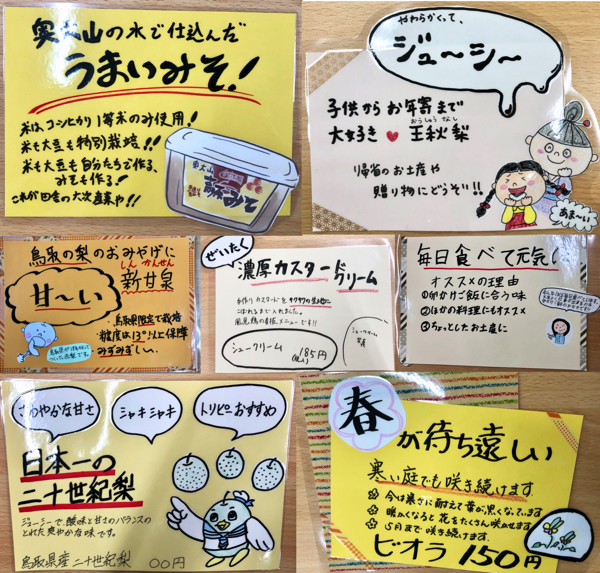 奥大山の水で仕込んだ
うまいみそ!
米は、コシヒカリ1等米のみ使用!
米も大豆も特別栽培!!
米も大豆も自分たちで作る、
みそも作る!
これが田舎の六次産業や!!
奥大山
やわらかくて、
ジューシー
子供からお年寄まで
大好き♥王秋梨
おうしゅうなし
帰省のお土産や
贈り物にどうぞ!!
あま〜い
鳥取の梨のおみやげに
しんかんせん
新甘泉
甘〜い
鳥取県限定で栽培
糖度は13°以上保障
みずみずしい
ぜいたく
濃厚カスタードクリーム
手作りカスタードをサクサクの生地に
こぼれるまで入れました。
シュークリーム 185円
(税込)
シュークリーム
写真
毎日食べて元気に
オススメの理由
①卵かけご飯に合う味
②ほかの料理にもオススメ
③ちょっとしたお土産に
さわやかな甘さ
シャキシャキ
トリピーおすすめ
日本一の
二十世紀梨
ジューシーで、酸味と甘さのバランスの
とれた爽やかな味です。
鳥取県産二十世紀梨 〇〇円
春が待ち遠しい
寒い庭でも咲き続けます
☆今は寒さに耐えて葉が黒くなっています
☆暖かくなると花をたくさん咲かせます
☆5月まで咲き続けます。
ビオラ 150円